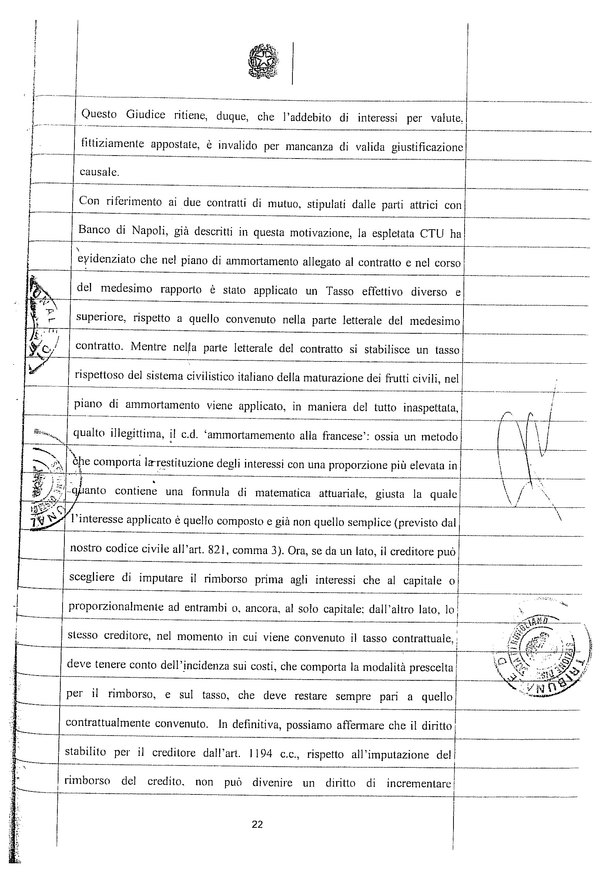 Questo Giudice ritiene, duque, che l'addebito di interessi per valute,
fittiziamente appostate, è invalido per mancanza di valida giustificazione
causale.
Con riferimento ai due contratti di mutuo, stipulati dalle parti attrici con
Banco di Napoli, già descritti in questa motivazione, la espletata CTU ha
evidenziato che nel piano di ammortamento allegato al contratto e nel corso
del medesimo rapporto è stato applicato un Tasso effettivo diverso e
superiore, rispetto a quello convenuto nella parte letterale del medesimo
contratto. Mentre nella parte letterale del contratto si stabilisce un tasso
rispettoso del sistema civilistico italiano della maturazione dei frutti civili, nel
piano di ammortamento viene applicato, in maniera del tutto inaspettata,
qualto illegittima, il c.d. 'ammortamemento alla francese': ossia un metodo
che comporta la restituzione degli interessi con una proporzione più elevata in
quanto contiene una formula di matematica attuariale, giusta la quale
l'interesse applicato è quello composto e già non quello semplice (previsto dal
nostro codice civile all'art. 821, comma 3). Ora, se da un lato, il creditore può
scegliere di imputare il rimborso prima agli interessi che al capitale o
proporzionalmente ad entrambi o, ancora, al solo capitale; dall'altro lato, lo
stesso creditore, nel momento in cui viene convenuto il tasso contrattuale,
deve tenere conto dell'incidenza sui costi, che comporta la modalità prescelta
per il rimborso, e sul tasso, che deve restare sempre pari a quello
contrattualmente convenuto. In definitiva, possiamo affermare che il diritto
stabilito per il creditore dall'art. 1194 c.c., rispetto all'imputazione del
rimborso del credito, non può divenire un diritto di incrementare
TRIBUNALE D
22